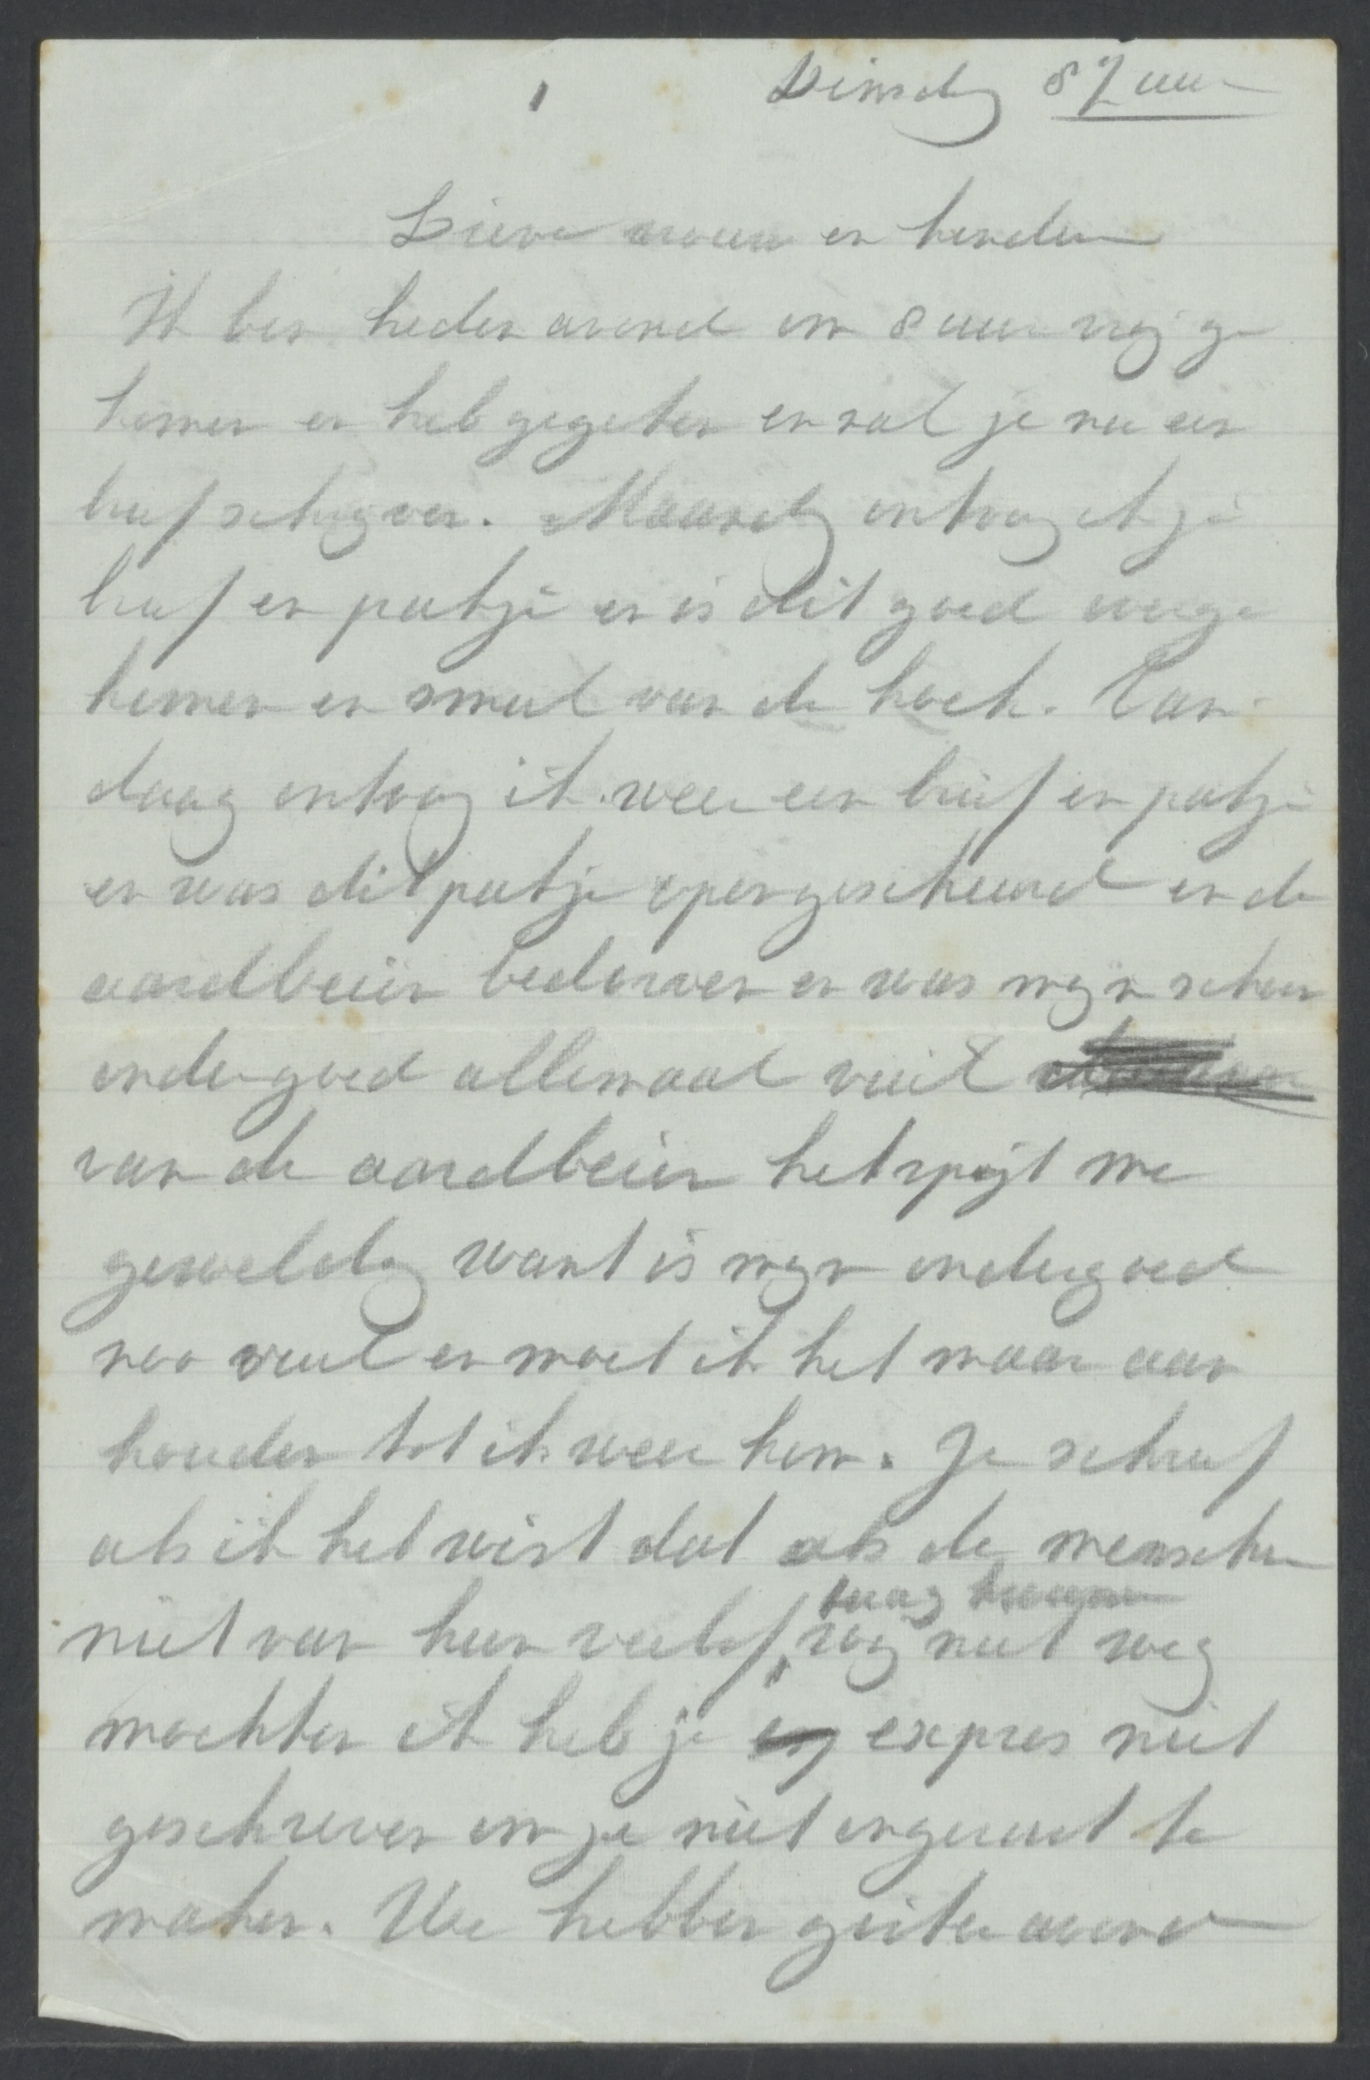 1 Dinsdag 8½ uur
Lieve vrouw en kinderen
Ik ben heden avond om 8 uur vrij ge
komen en heb gegeten en zal je nu een
brief schrijven. Maandag ontving ik je
brief en pakje en is dit goed overge
komen en smul van de koek. Van
daag ontving ik weer een brief en pakje
en was dit pakje opengescheurd en de
aardbeien bedorven en was mijn schoon
ondergoed allemaal vuil
van de aardbeien het spijt me
geweldig want is mijn ondergoed
zoo vuil en moet ik het maar aan
houden tot ik weer kom. Je schreef
als ik het wist dat als de menschen
niet van hun verlof terug kwamen
wij niet weg
mochten ik heb je expres niet
geschreven om je niet ongerust te
maken. We hebben gisteravond